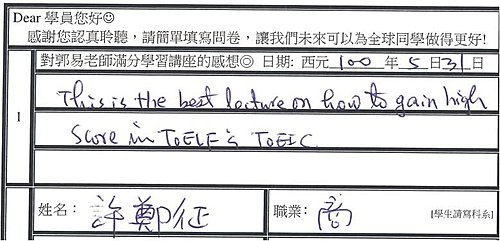 Dear 學員您好☺
感謝您認真聆聽，請簡單填寫問卷，讓我們未來可以為全球同學做得更好!
對郭易老師滿分學習講座的感想◎ 日期: 西元 100 年 5 日 31 日
1
This is the best lecture on how to gain high
Score in TOELF's TOEIC.
姓名： 許鄭征 職業： 商 [學生請寫科系]